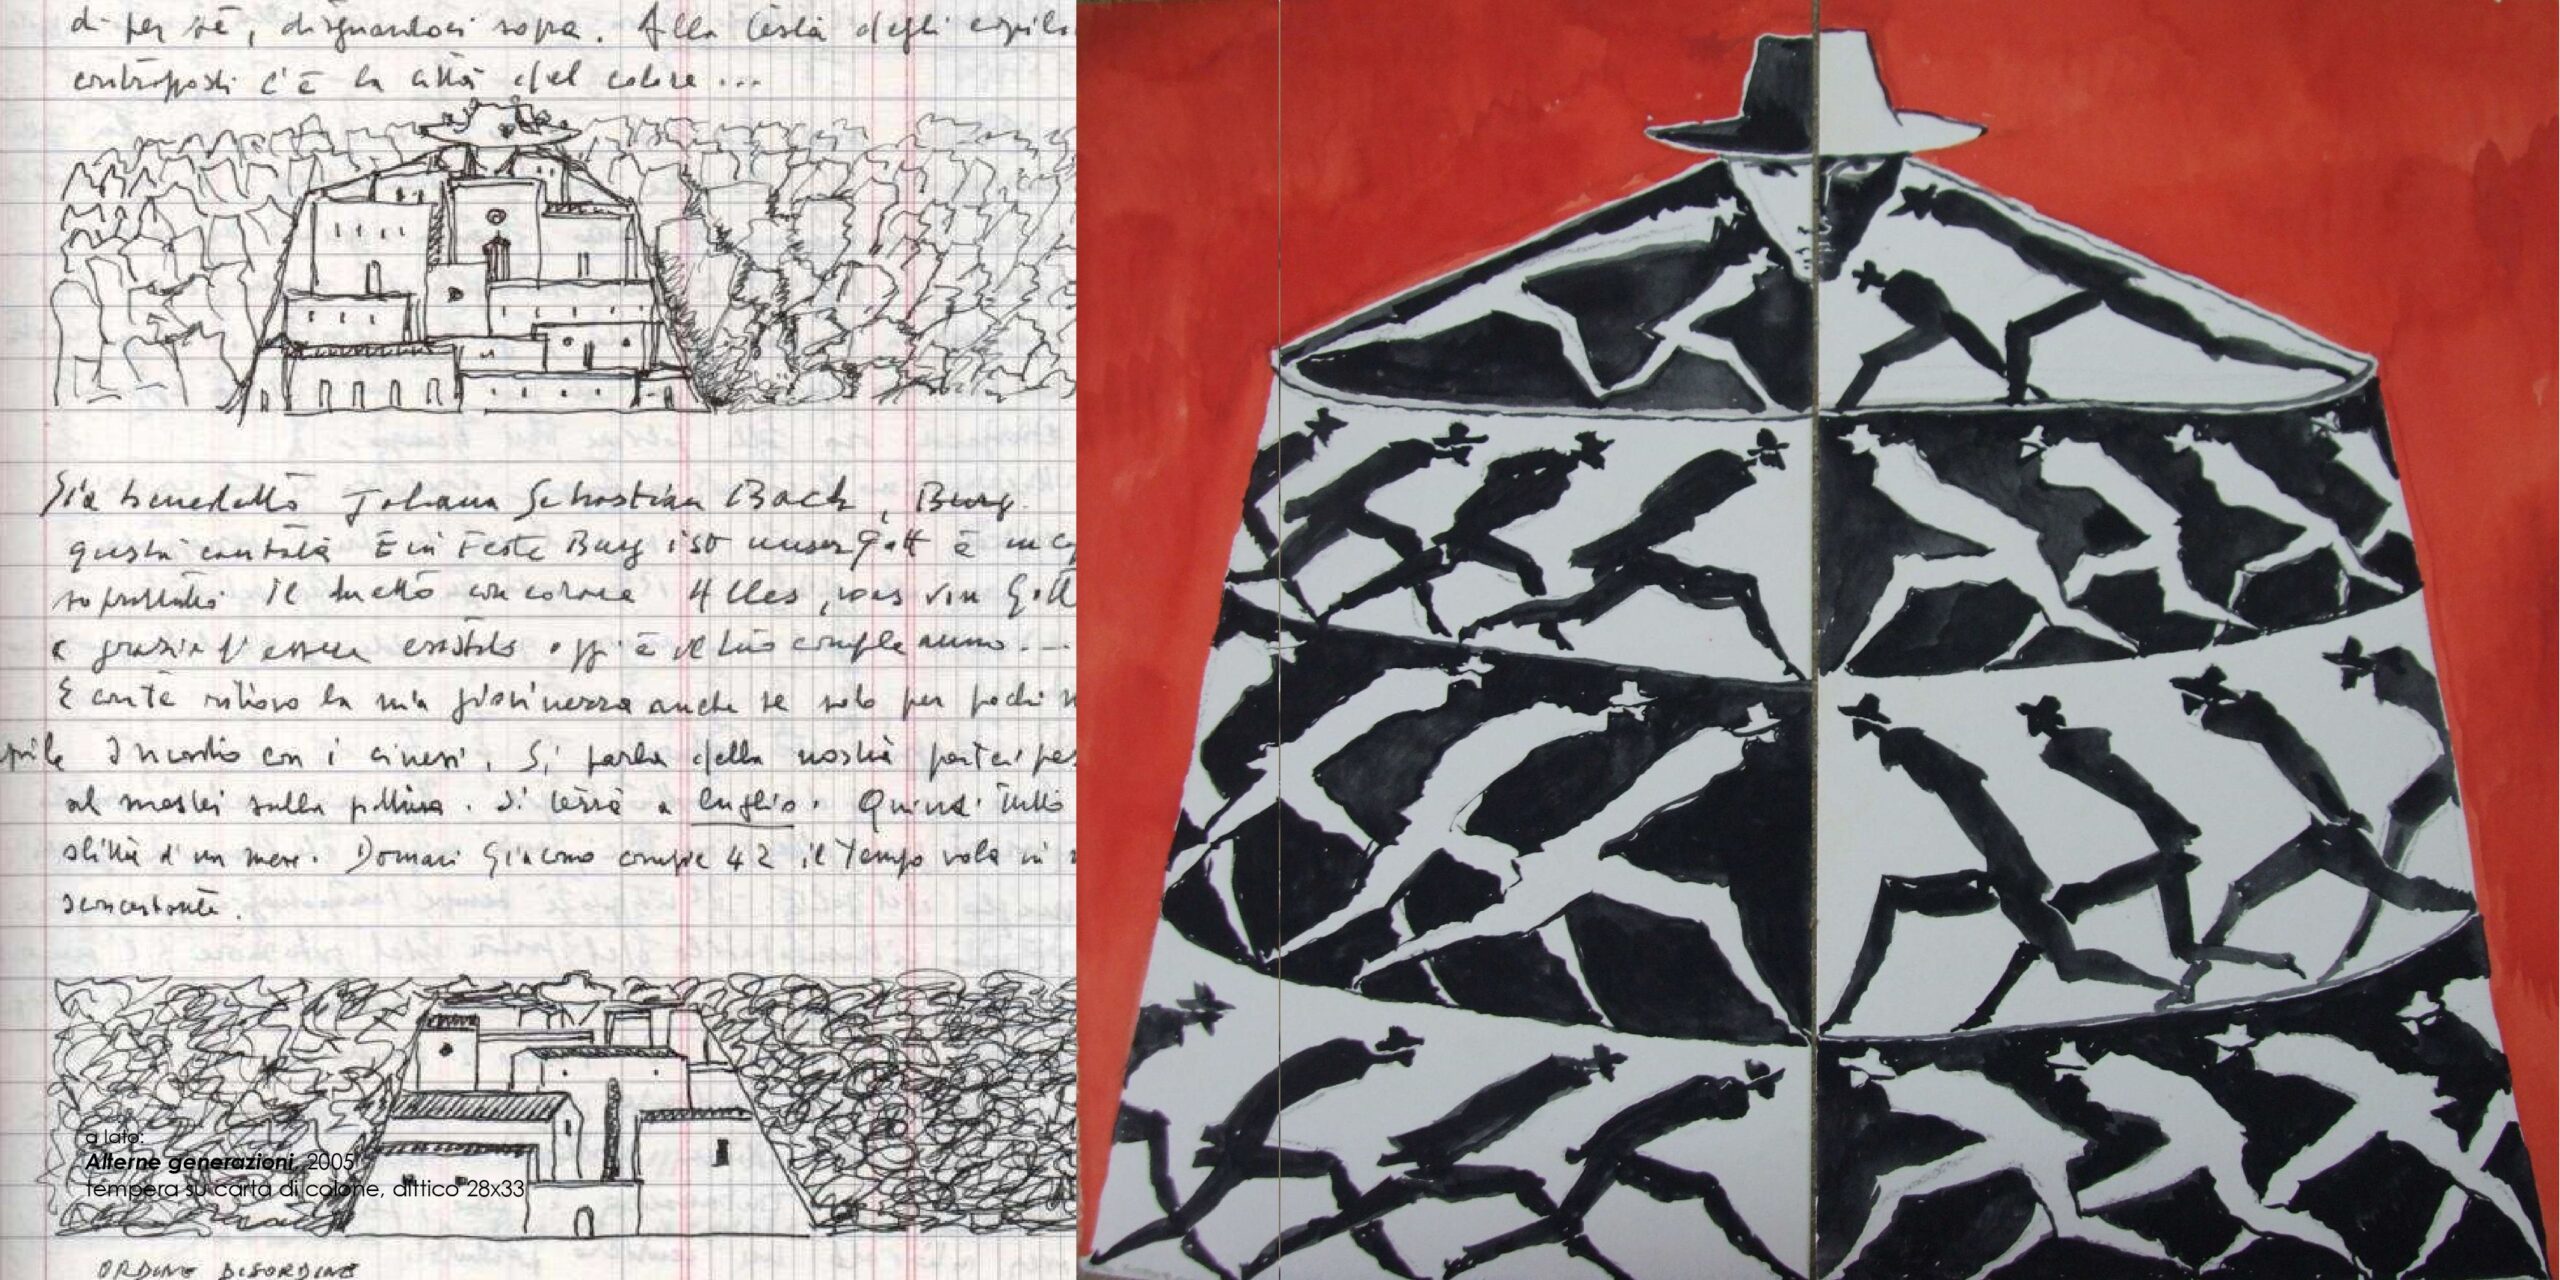 di per sé, disegnandoci sopra. Alla città degli
contrapposti c'è la città del colore...
Sia benedetto Johann Sebastian Bach,
questa cantata Ein Feste Burg ist unser Gott è
soprattutto il duetto con corale Alles, was von Gott
e grazie d'essere esistito oggi è il tuo compleanno...
E con te ritrovo la mia giovinezza anche se solo per pochi
Incontro con i cinesi. Si parla della nostra
al sulla pittura. Si terrà a luglio. Quindi tutto
slitta d'un mese. Domani Giacomo compie 42 il tempo vola in
sconcertante.
a lato:
Alterne generazioni, 2005
tempera su carta di cotone, dittico 28x33
ORDINE DISORDINE